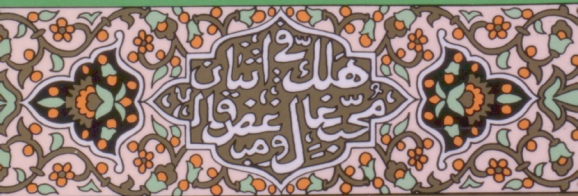 هلك في اثنان
محب غال ومبغض قال